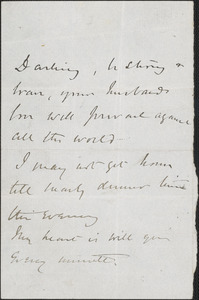 Darling, be strong &
brave, your husband's
love will prevail against
all the world -
I may not get home
till nearly dinner time
this Evening
My heart is with you
Every minute.